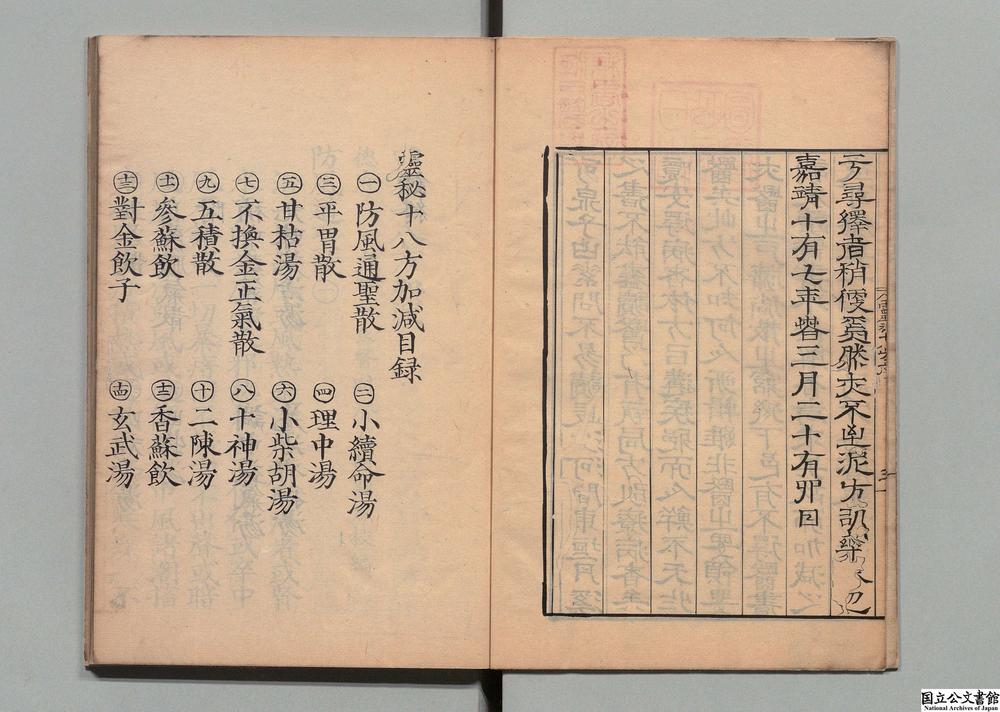 于尋擇者稍便焉然夫不泥方
嘉靖十有七年春三月二十有四日
靈秘十八方加減目録
㊀防風通聖散 ㊁小續命湯
㊂平胃散 ㊃理中湯
㊄甘枯湯 ㊅小柴胡湯
㊆不換金正氣散 ㊇十神湯
㊈五積散 ㊉二陳湯
十一參蘇飲 十二香蘇飲
十三對金飲子 十四玄武湯
国立公文書館
National Archives of Japan